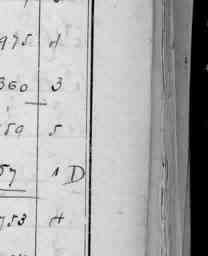 975 4
360 3
59 5
57 1 D
753 4